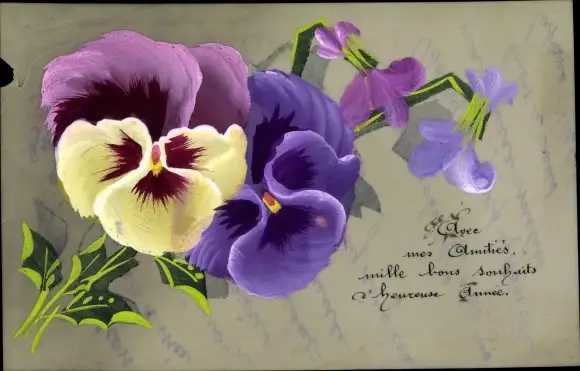 Avec
mes Amitiés,
mille bons souhaits
d'heureuse Année.